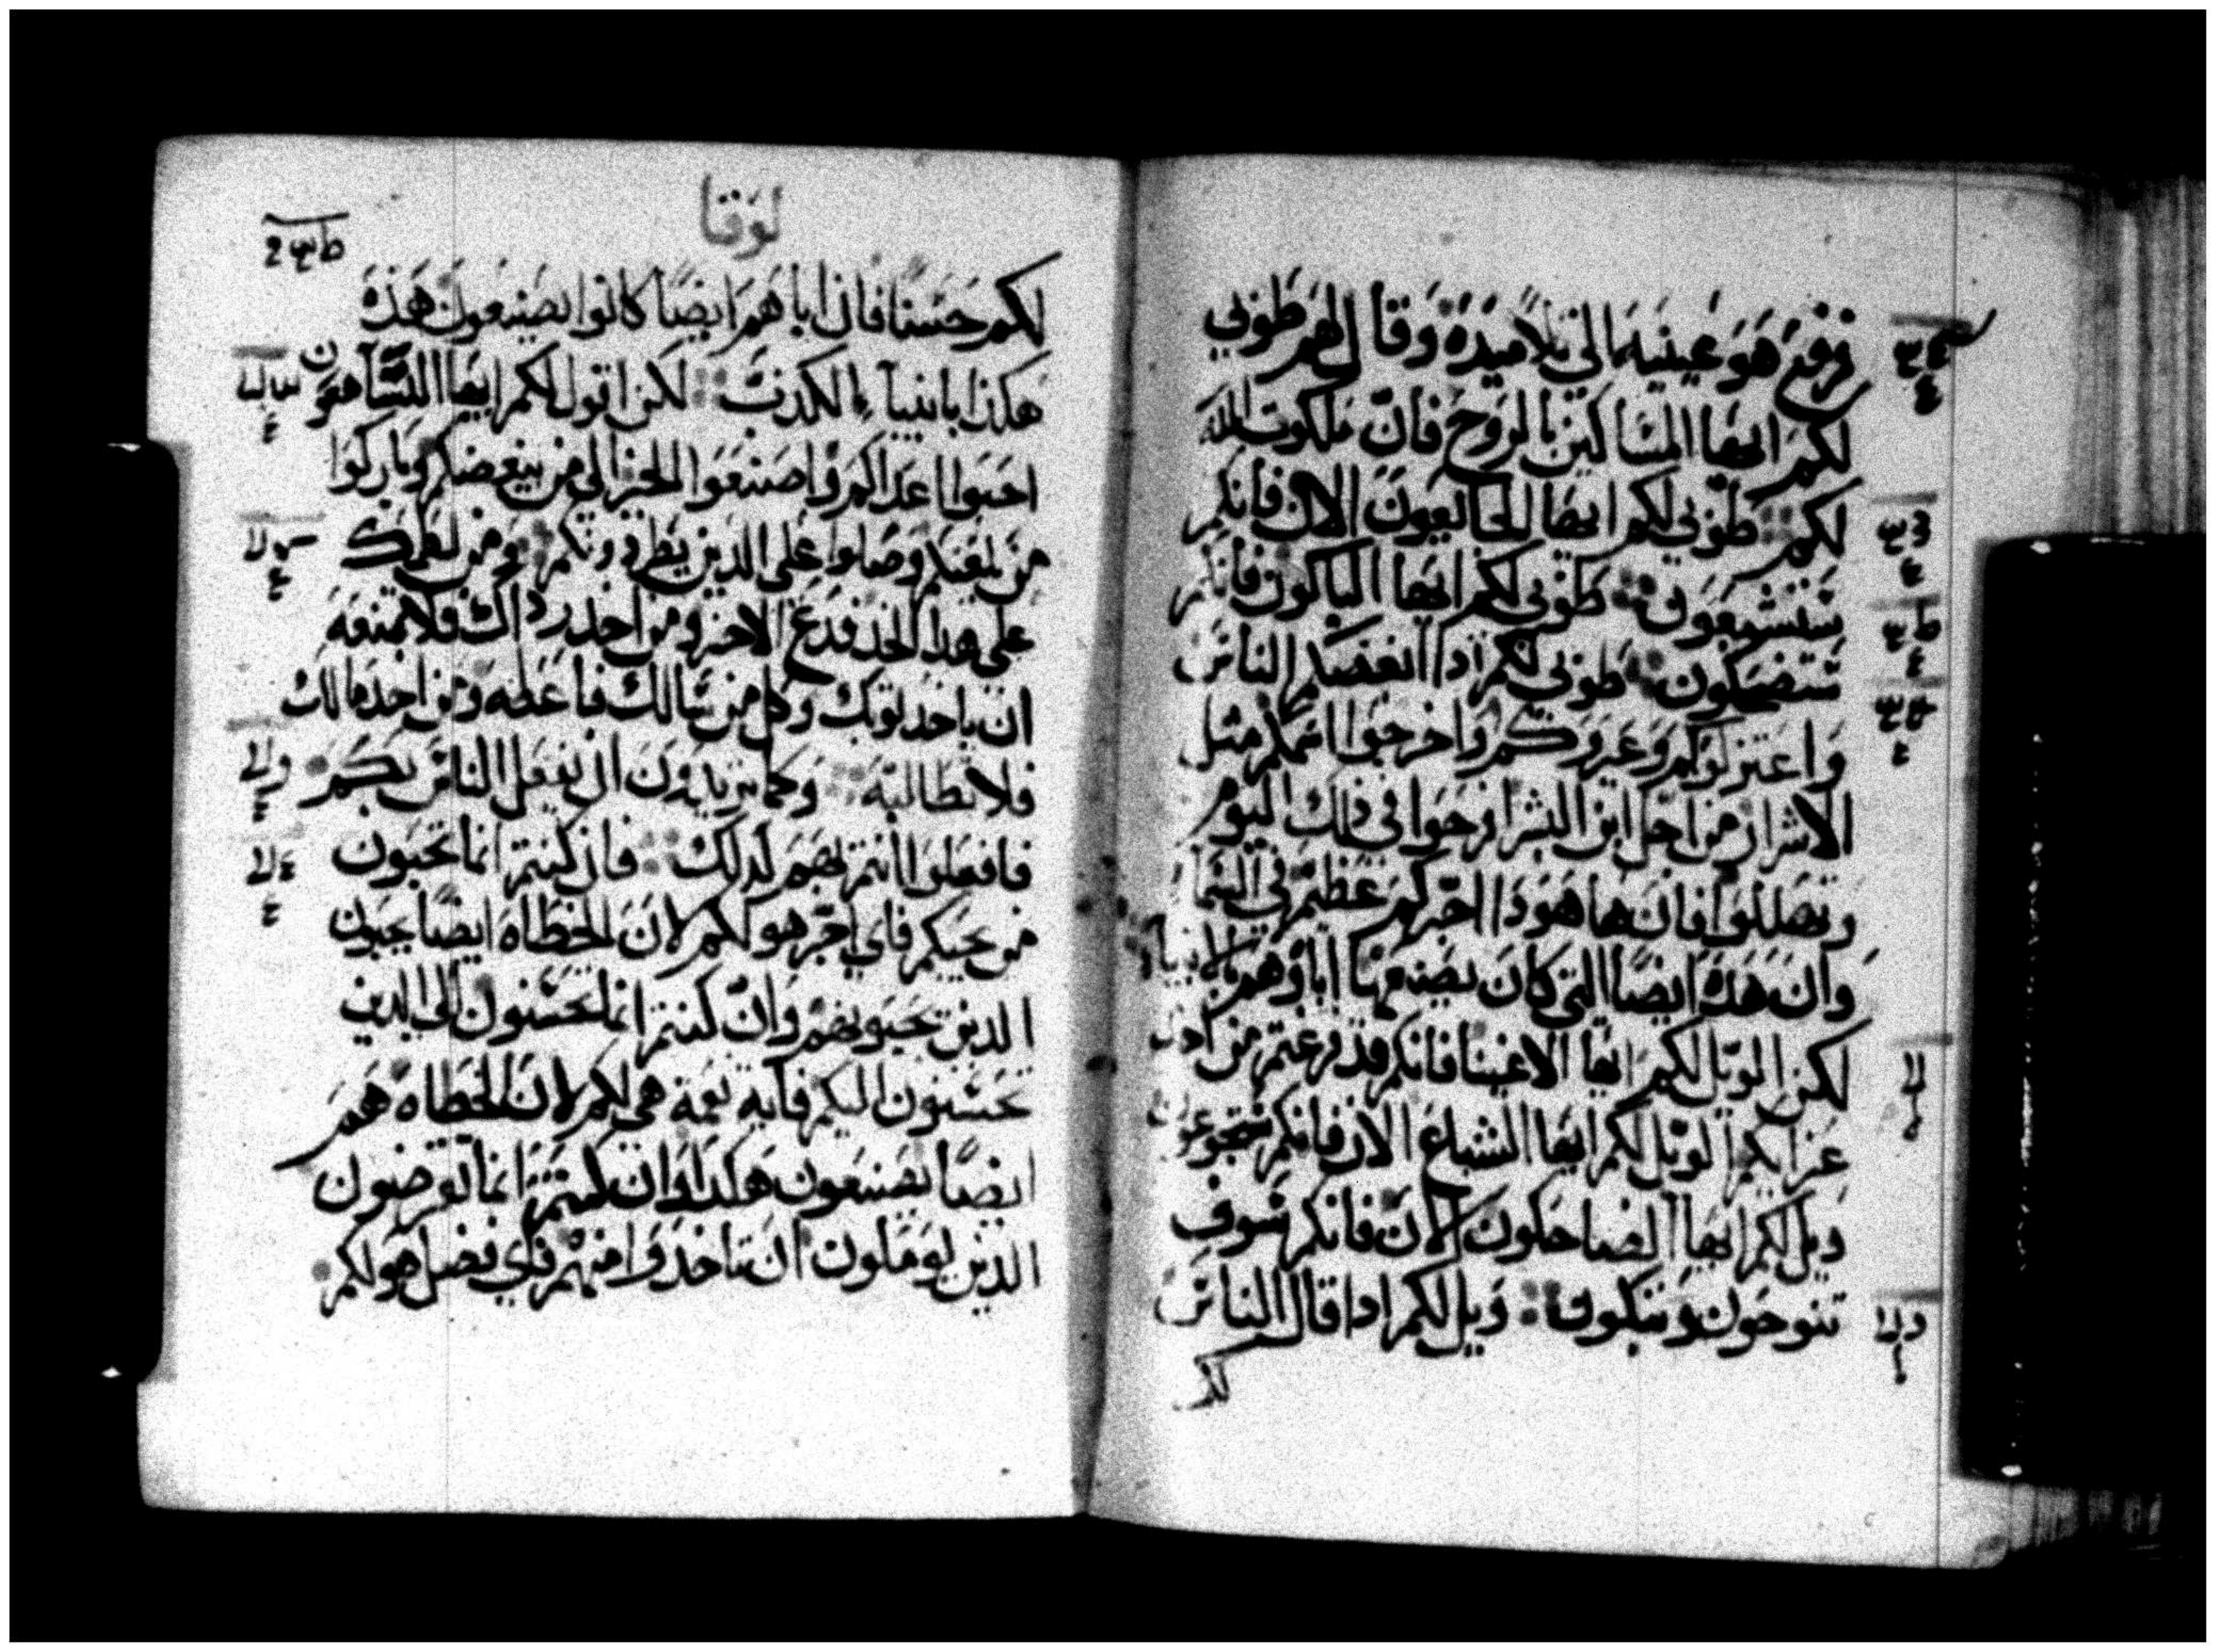 فرفع هو عينيه الي تلاميذه وقال لهم طوبي
لكم ايها المساكين بالروح فان ملكوت الله
لكم طوبي لكم ايها الجايعون الان فانكم
ستشبعون طوبي لكم ايها الباكون فانكم
ستضحكون طوبي لكم اذا ابغضكم الناس
واعتزلوكم وعيروكم واخرجوا اسمكم مثل
الاشرار من اجل ابن البشر افرحوا في ذلك اليوم
وتهللوا فان ها هوذا اجركم عظيم في السما
وان هذه ايضا التي كان يصنعها اباوهم بالانبيا
لكن الويل لكم ايها الاغنيا فانكم قد فرغتم من اخذ
عزايكم الويل لكم ايها الشباع الان فانكم ستجوعون
ويل لكم ايها الضاحكون الان فانكم سوف
تنوحون وتبكون ويل لكم اذا قال الناس
لكم
لوقا
لكم حسنا فان اباهم ايضا كانوا يصنعون هذه
هكذا بانبياء الكذب لكن اقول لكم ايها السامعون
احبوا اعداكم واصنعوا الخير الي من يبغضكم وباركوا
من لعنكم وصلوا علي الذين يطردونكم ومن لطمك
علي هذا الخد فدع الاخر ومن اخذ رداك فلا تمنعه
ان ياخد ثوبك وكل من سالك فاعطه ومن اخد مالك
فلا تطالبه وكما تريدون ان يفعل الناس بكم
فافعلوا انتم بهم كذلك فان كنتم انما تحبون
من يحبكم فاي اجر هو لكم لان الخطاه ايضا يحبون
الدين يحبونهم وان كنتم انما تحسنون الي الدين
يحسنون اليكم فاية نعمة هي لكم لان الخطاه هم
ايضا يصنعون هكدا وان كنتم انما تقرضون
الذين تومّلون ان تاخدوا منهم فاي فضل هو لكم